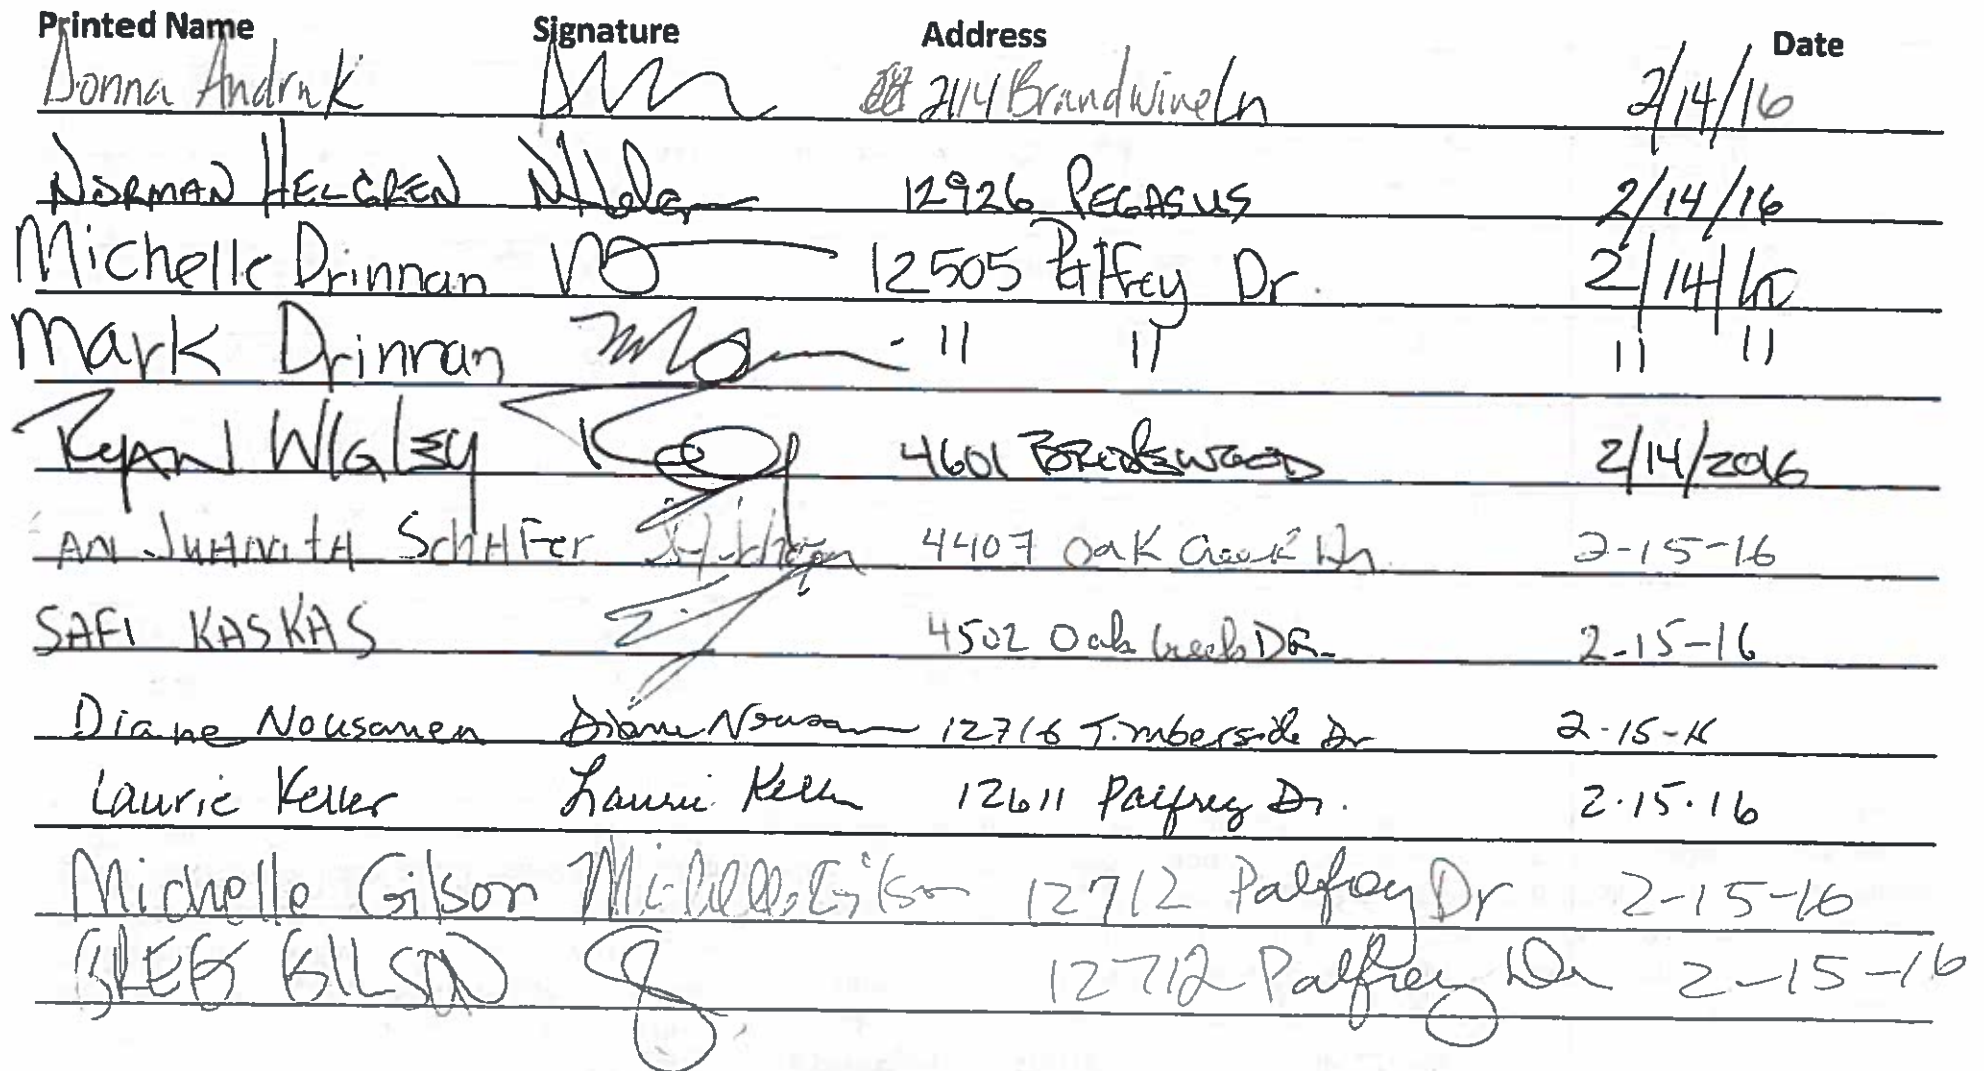 Printed Name Signature Address Date
Donna Andruk 2114 Brandwine Ln 2/14/16
NORMAN HELGREN 12926 PEGASUS 2/14/16
Michelle Drinnan 12505 Palfrey Dr. 2/14/16
Mark Drinnan " " " "
RYAN WIGLEY 4601 BROOKWOOD 2/14/2016
JUANITA SCHAFer 4407 Oak Creek Dr. 2-15-16
SAFI KASKAS 4502 Oak Creek DR. 2-15-16
Diane Nousanen Diane Nousanen 12716 Timberside Dr 2-15-16
Laurie Keller Laurie Keller 12611 Palfrey Dr. 2.15.16
Michelle Gilson Michelle Gilson 12712 Palfrey Dr 2-15-16
GREG GILSON 12712 Palfrey Dr 2-15-16